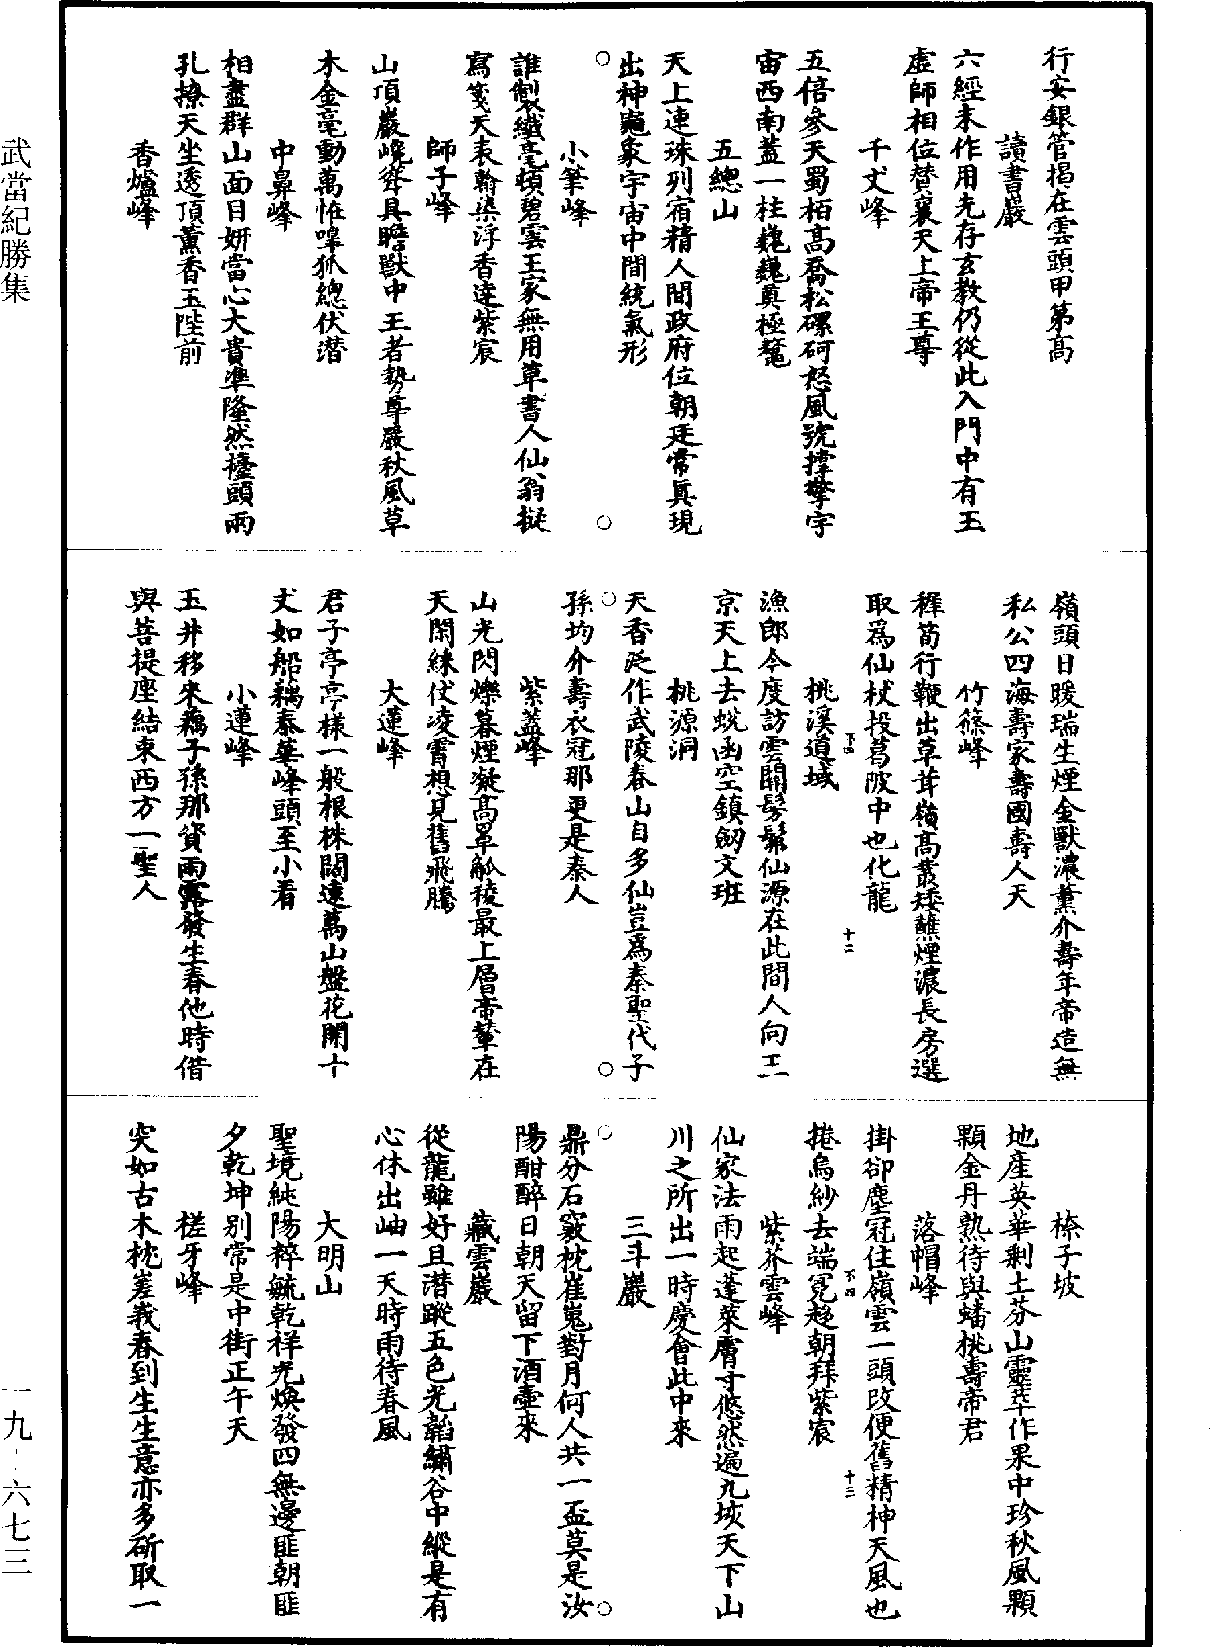 武當紀勝集
行安銀管揭在雲頭甲第高
讀書巖
六經未作用先存玄教仍從此入門中有玉
虛師相位替襄天上帝王尊
千丈峰
五倍參天蜀栢高喬松磥砢怒風號撑擎宇
宙西南蓋一柱巍巍奠極鼇
五總山
天上連珠列宿精人間政府位朝廷常眞現
出神龜象宇宙中間統氣形
小筆峰
誰製纖毫頓碧雲王家無用草書人仙翁擬
寫箋天表翰染浮香達紫宸
師子峰
山頂巖嶢聳具瞻獸中王者勢尊嚴秋風草
木金毫動萬恠嘷狐總伏潜
中鼻峰
相盡群山面目妍當心大貴準隆然擡頭兩
孔撩天坐透頂薰香玉陛前
香爐峰
嶺頭日暖瑞生煙金獸濃薰介壽年帝造無
私公四海壽家壽國壽人天
竹篠峰
稺筍行鞭出草茸嶺高叢矮蘸煙濃長房選
取爲仙杖投葛陂中也化龍
桃溪道域
漁郎今度訪雲關髣髴仙源在此間人向玉
京天上去蛻函空鎮劒文班
桃源洞
天香泛作武陵春山自多仙豈爲秦聖代子
孫均介壽衣冠那更是秦人
紫蓋峰
山光閃爍暮煙凝高罩觚稜最上層帝輦在
天閑綵仗凌霄想見舊飛騰
大蓮峰
君子亭亭樣一般根株闊遠萬山盤花開十
丈如船藕泰華峰頭至小看
小蓮峰
玉井移來藕子孫那資雨露發生春他時借
與菩提座結束西方一聖人
榛子坡
地產英華剩土芬山靈萃作果中珍秋風顆
顆金丹熟待與蟠桃壽帝君
落帽峰
掛卻塵冠住嶺雲一頭改便舊精神天風也
捲烏紗去端冕趍朝拜紫宸
紫芥雲峰
仙家法雨起蓬萊膚寸悠然遍九垓天下山
川之所出一時慶會此中來
三斗巖
鼎分石竅枕崔嵬對月何人共一盃莫是汝
陽酣醉日朝天留下酒壺來
藏雲巖
從龍雖好且潜蹤五色光韜繡谷中縱是有
心休出岫一天時雨待春風
大明山
聖境純陽粹毓乾祥光煥發四無邊匪朝匪
夕乾坤別常是中街正午天
槎牙峰
突如古木枕嵳峩春到生生意亦多斫取一
下四
十二
下四
十三
一九-六七三